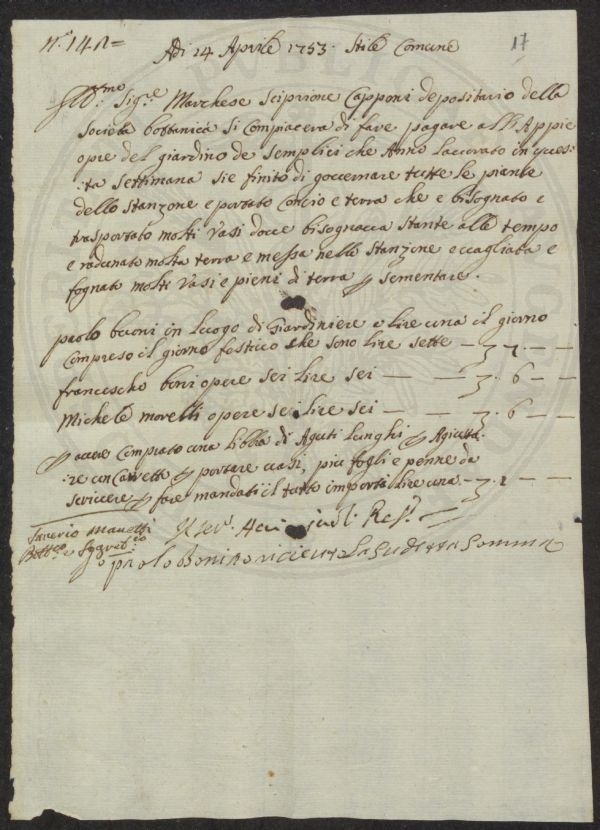 N.° 141= Adi 14 Aprile 1753. Stile Comune 17
Ill:mo Sig:re Marchese Scipione Capponi depositario della
Società bottanica si compiacera di fare pagare all Appie
opre del giardino de semplici che Anno lavorato in ques
:ta settimana si e finito di governare tutte le piante
dello stanzone e portato Concio e terra che e bisognato e
trasportato molti Vasi dove bisognava stante alle tempo
e radunato molta terra e messa nello stanzone e vagliata e
fognato molti Vasi e pieni di terra p sementare.
paolo buoni in luogo di Giardiniere a lire una il giorno
Compreso il giorno festivo che sono lire sette — 3 7. — —
francescho boni opere sei lire sei — — 3. 6 — —
Michele morelli opere sei lire sei — — 3. 6 — —
p avere Comprato una libba di Aguti lunghi p Agiusta
:re un Carretto p portare vasi, più fogli e penne da
scrivere p fare mandati il tutto importa lire una — 3. 1 — —
Saverio Manetti
Bott:co e Segret:rio
o paolo Boni o ricieuto la sudetta somma